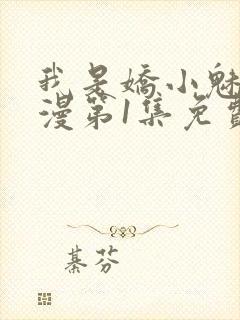 我是嬌小魅
漫第1集免費
綦芬